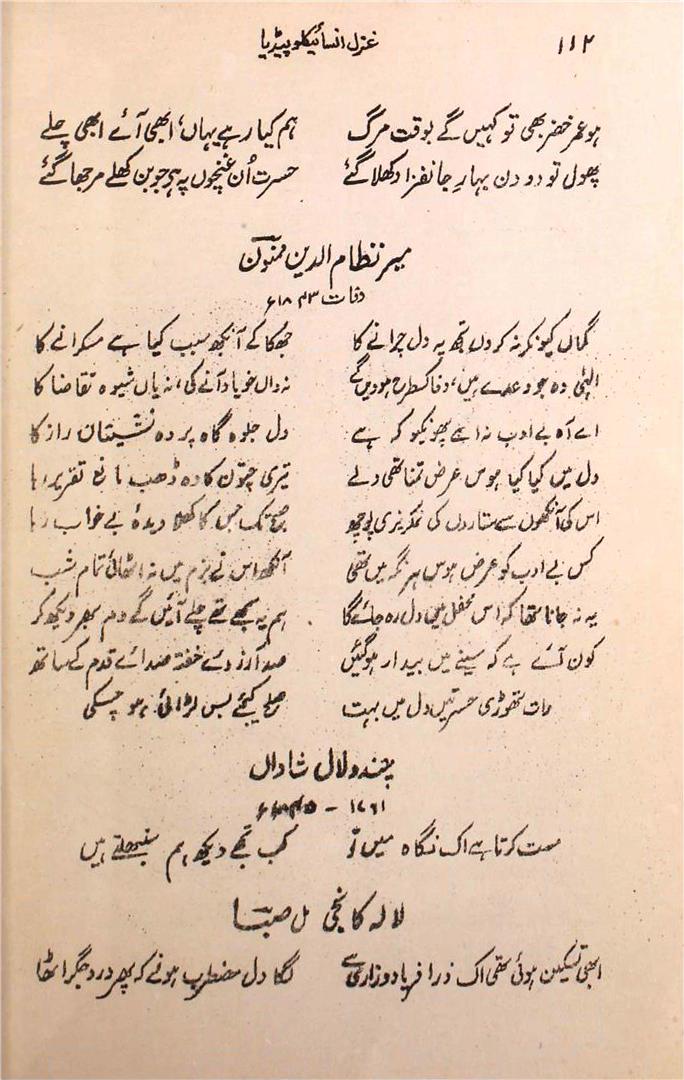 ۱۱۲ غزل انسائیکلوپیڈیا
ہو عمر خضر بھی تو کہیں گے بوقت مرگ ہم کیا رہے یہاں، ابھی آئے ابھی چلے
پھول تو دو دن بہارِ جانفزا دکھلا گئے حسرت اُن غنچوں پہ ہے جو بن کھلے مرجھا گئے
میر نظام الدین ممنونؔ
وفات ۱۸۴۳ء
گماں کیونکر نہ کروں تجھ پہ دل چرانے کا جھکا کے آنکھ سبب کیا ہے مسکرانے کا
الٰہی وہ جو وعدے ہیں، وفا کسطرح ہوویں گے نہ واں خو یاد آنے کی، نہ یاں شیوہ تقاضا کا
اے آہ بے ادب نہ اسے پھونکیو کہ ہے دل جلوہ گاہ پردہ نشینان راز کا
دل میں کیا کیا ہوس عرض تمنا تھی ولے تیری چتون کا وہ ڈھب مانع تقریر رہا
اس کی آنکھوں سے ستاروں کی نمکریزی پوچھ صبح تک جس کا کھلا دیدۂ بے خواب رہا
کس بے ادب کو عرض ہوس ہر نگہ میں تھی آنکھ اس نے بزم میں نہ اٹھائی تمام شب
یہ نہ جانا تھا کہ اس محفل میں دل رہ جائے گا ہم یہ سمجھے تھے چلے آئیں گے دم بھر دیکھ کر
کون آئے ہے کہ سینے میں بیدار ہو گئیں صد آرزوئے خفتہ صدائے قدم کے ساتھ
رات تھوڑی حسرتیں دل میں بہت صلح کیجئے بس لڑائی ہو چکی
چندولال شاداں
۱۷۶۱ -
مست کرتا ہے اک نگاہ میں تو کب تجھے دیکھ ہم سنبھلتے ہیں
لالہ کانجی مل صباؔ
ابھی تسکین ہوئی تھی اک ذرا فریاد و زاری سے لگا دل مضطرب ہونے کہ پھر درد جگر اٹھا